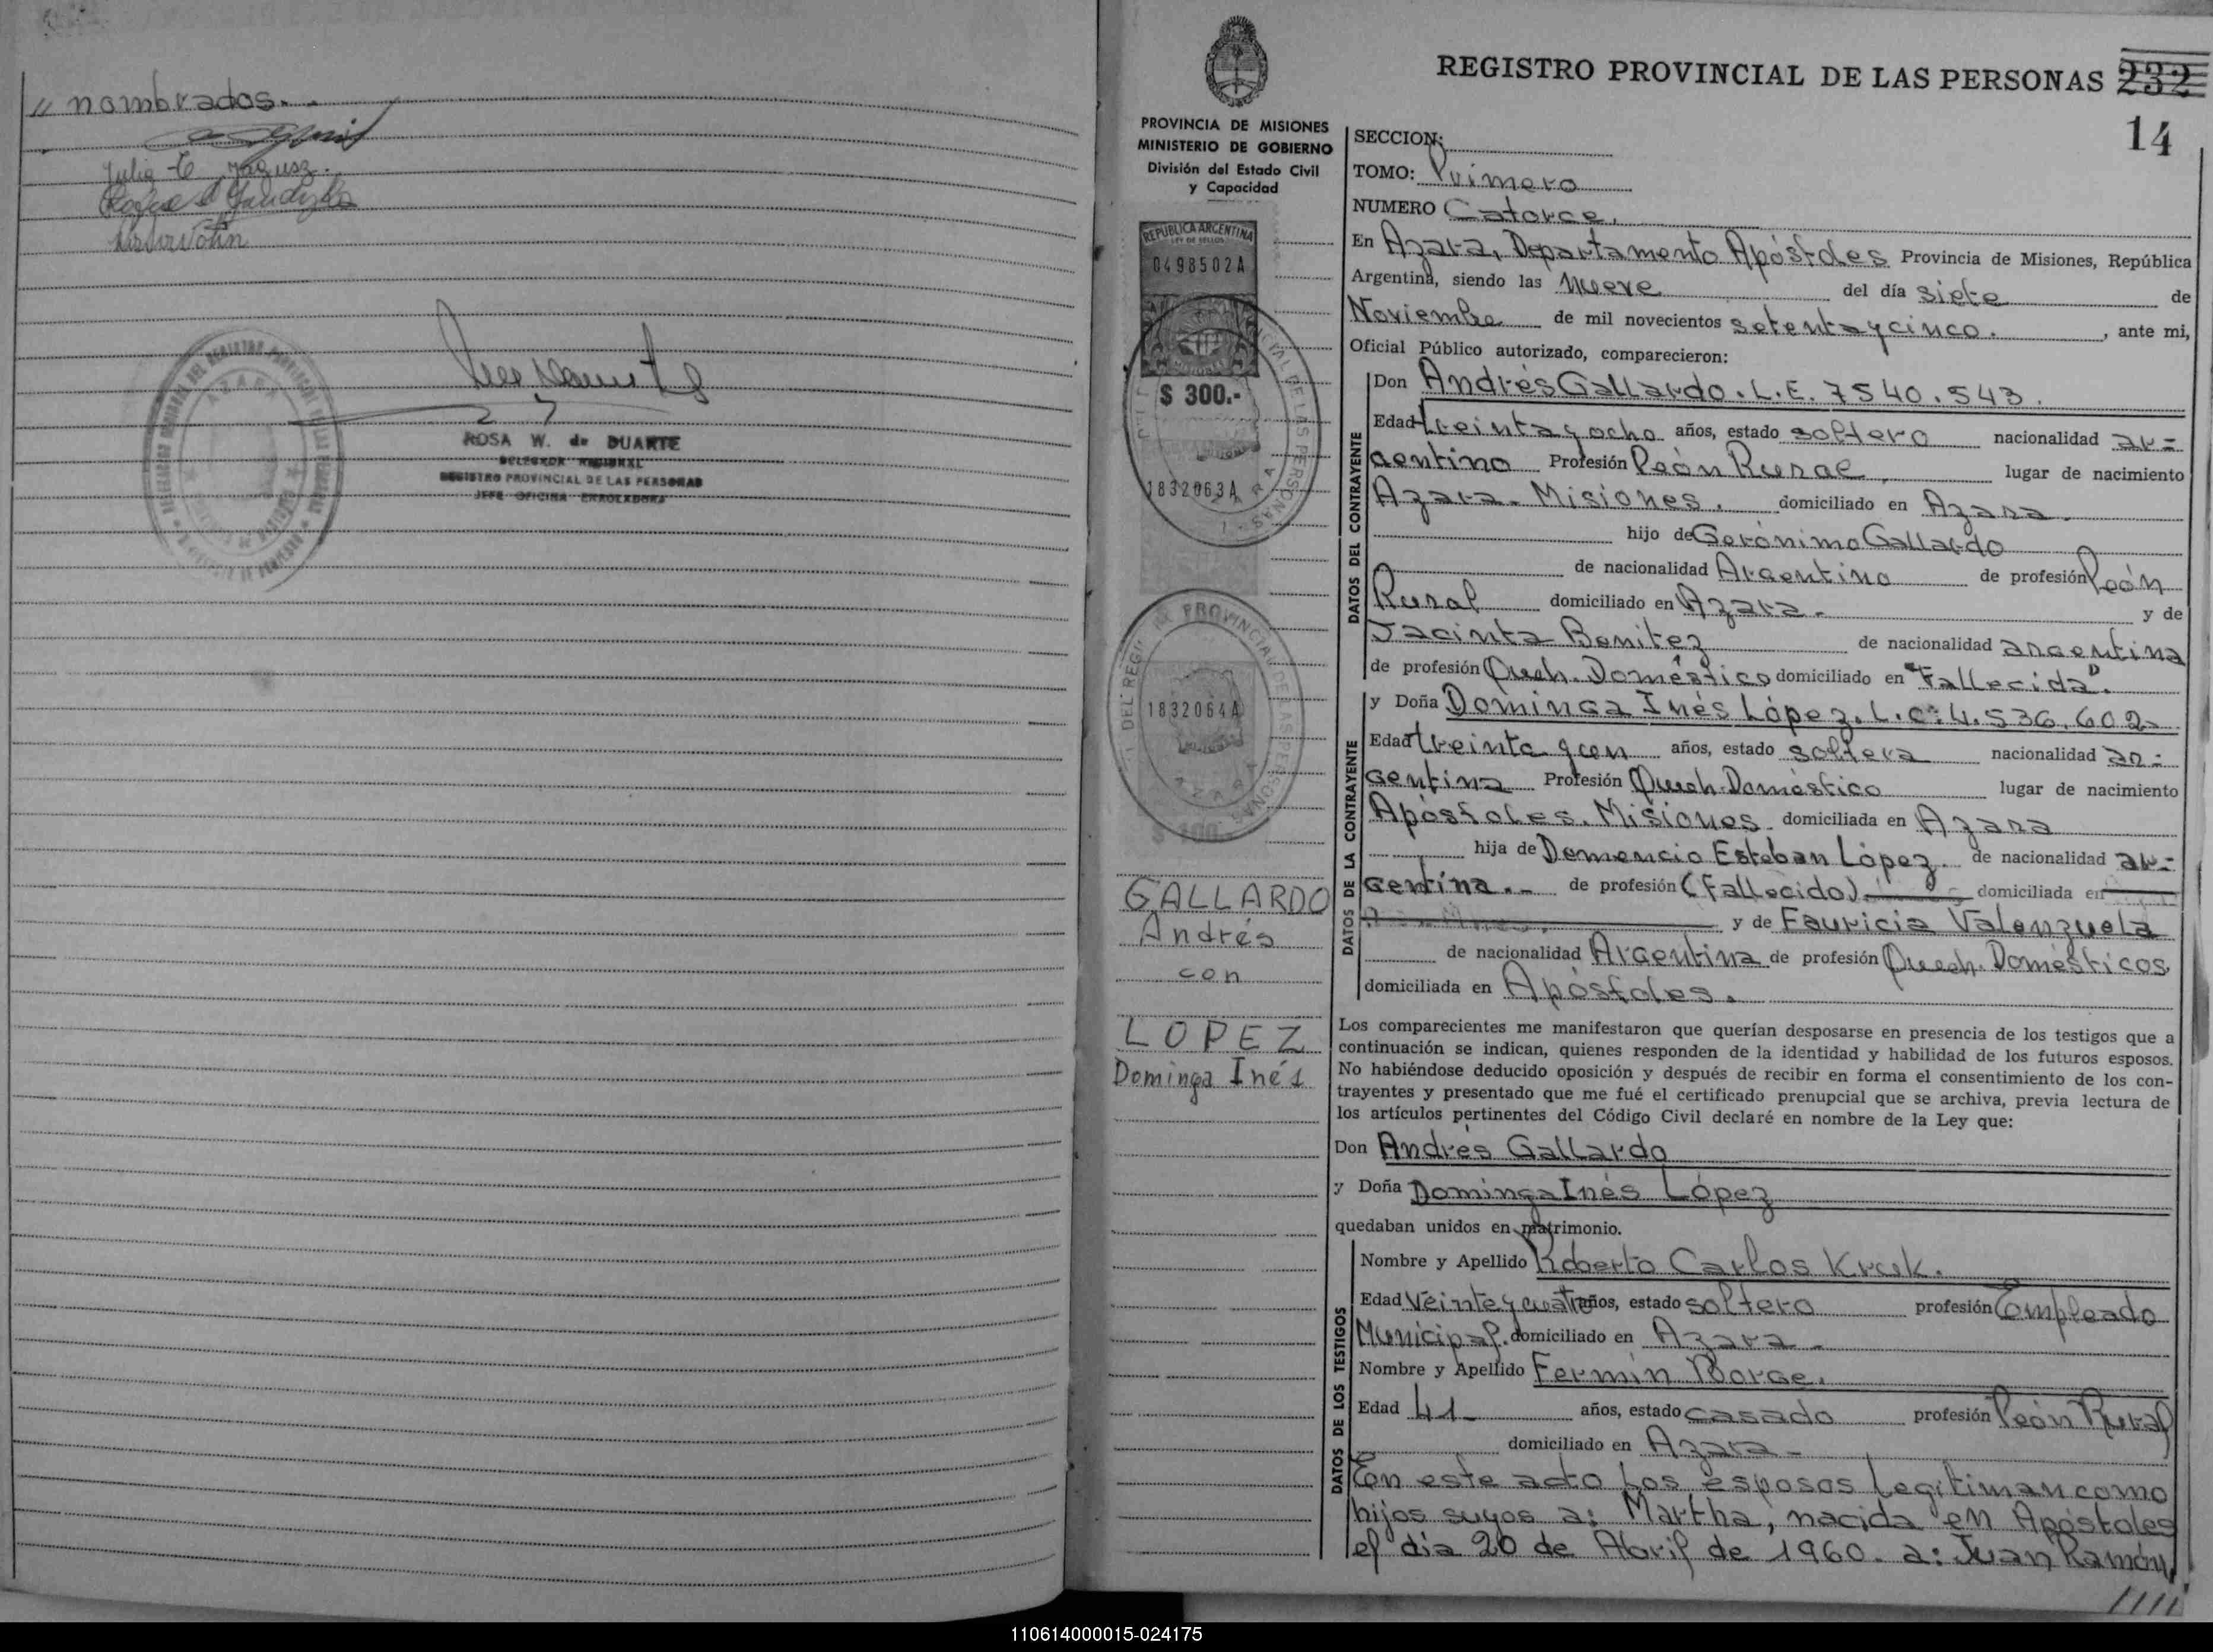 // nombrados. -
Julia C. Jagusz.
ROSA W. de DUARTE
DELEGADA REGIONAL
REGISTRO PROVINCIAL DE LAS PERSONAS
JEFE OFICINA ENROLADORA
REGISTRO PROVINCIAL DE LAS PERSONAS 232
14
PROVINCIA DE MISIONES
MINISTERIO DE GOBIERNO
División del Estado Civil
y Capacidad
REPUBLICA ARGENTINA
LEY DE SELLOS
0498502A
$ 300.-
1832063A
1832064A
$ 100.-
GALLARDO
Andrés
con
LOPEZ
Dominga Inés
SECCION:
TOMO: Primero
NUMERO Catorce.
En Azara, Departamento Apóstoles Provincia de Misiones, República
Argentina, siendo las nueve del día siete de
Noviembre de mil novecientos setenta y cinco. , ante mi,
Oficial Público autorizado, comparecieron:
DATOS DEL CONTRAYENTE
Don Andrés Gallardo. L.E. 7540.543.
Edad treinta y ocho años, estado soltero nacionalidad ar=
gentino Profesión Peón Rural, lugar de nacimiento
Azara - Misiones. domiciliado en Azara.
hijo de Gerónimo Gallardo
de nacionalidad Argentino de profesión Peón
Rural domiciliado en Azara. y de
Jacinta Benitez de nacionalidad argentina
de profesión Queh. Doméstico domiciliado en "Fallecida".
DATOS DE LA CONTRAYENTE
y Doña Dominga Inés López. L.C: 4.536.602-
Edad treinta y un años, estado soltera nacionalidad ar=
gentina Profesión Queh. Doméstico lugar de nacimiento
Apóstoles. Misiones domiciliada en Azara
hija de Demencio Esteban López. de nacionalidad ar=
gentina. - de profesión (Fallecido). domiciliada en
y de Fauricia Valenzuela
de nacionalidad Argentina de profesión Queh. Domésticos,
domiciliada en Apóstoles.
Los comparecientes me manifestaron que querían desposarse en presencia de los testigos que a
continuación se indican, quienes responden de la identidad y habilidad de los futuros esposos.
No habiéndose deducido oposición y después de recibir en forma el consentimiento de los con-
trayentes y presentado que me fué el certificado prenupcial que se archiva, previa lectura de
los artículos pertinentes del Código Civil declaré en nombre de la Ley que:
Don Andrés Gallardo
y Doña Dominga Inés López
quedaban unidos en matrimonio.
DATOS DE LOS TESTIGOS
Nombre y Apellido Roberto Carlos Kruk.
Edad Veinte y cuatro años, estado soltero profesión Empleado
Municipal. domiciliado en Azara -
Nombre y Apellido Fermín Borge.
Edad 41 - años, estado casado profesión Peón Rural
domiciliado en Azara -
En este acto los esposos legitiman como
hijos suyos a: Martha, nacida en Apóstoles
el día 20 de Abril de 1960. a: Juan Ramón,
/////
110614000015-024175